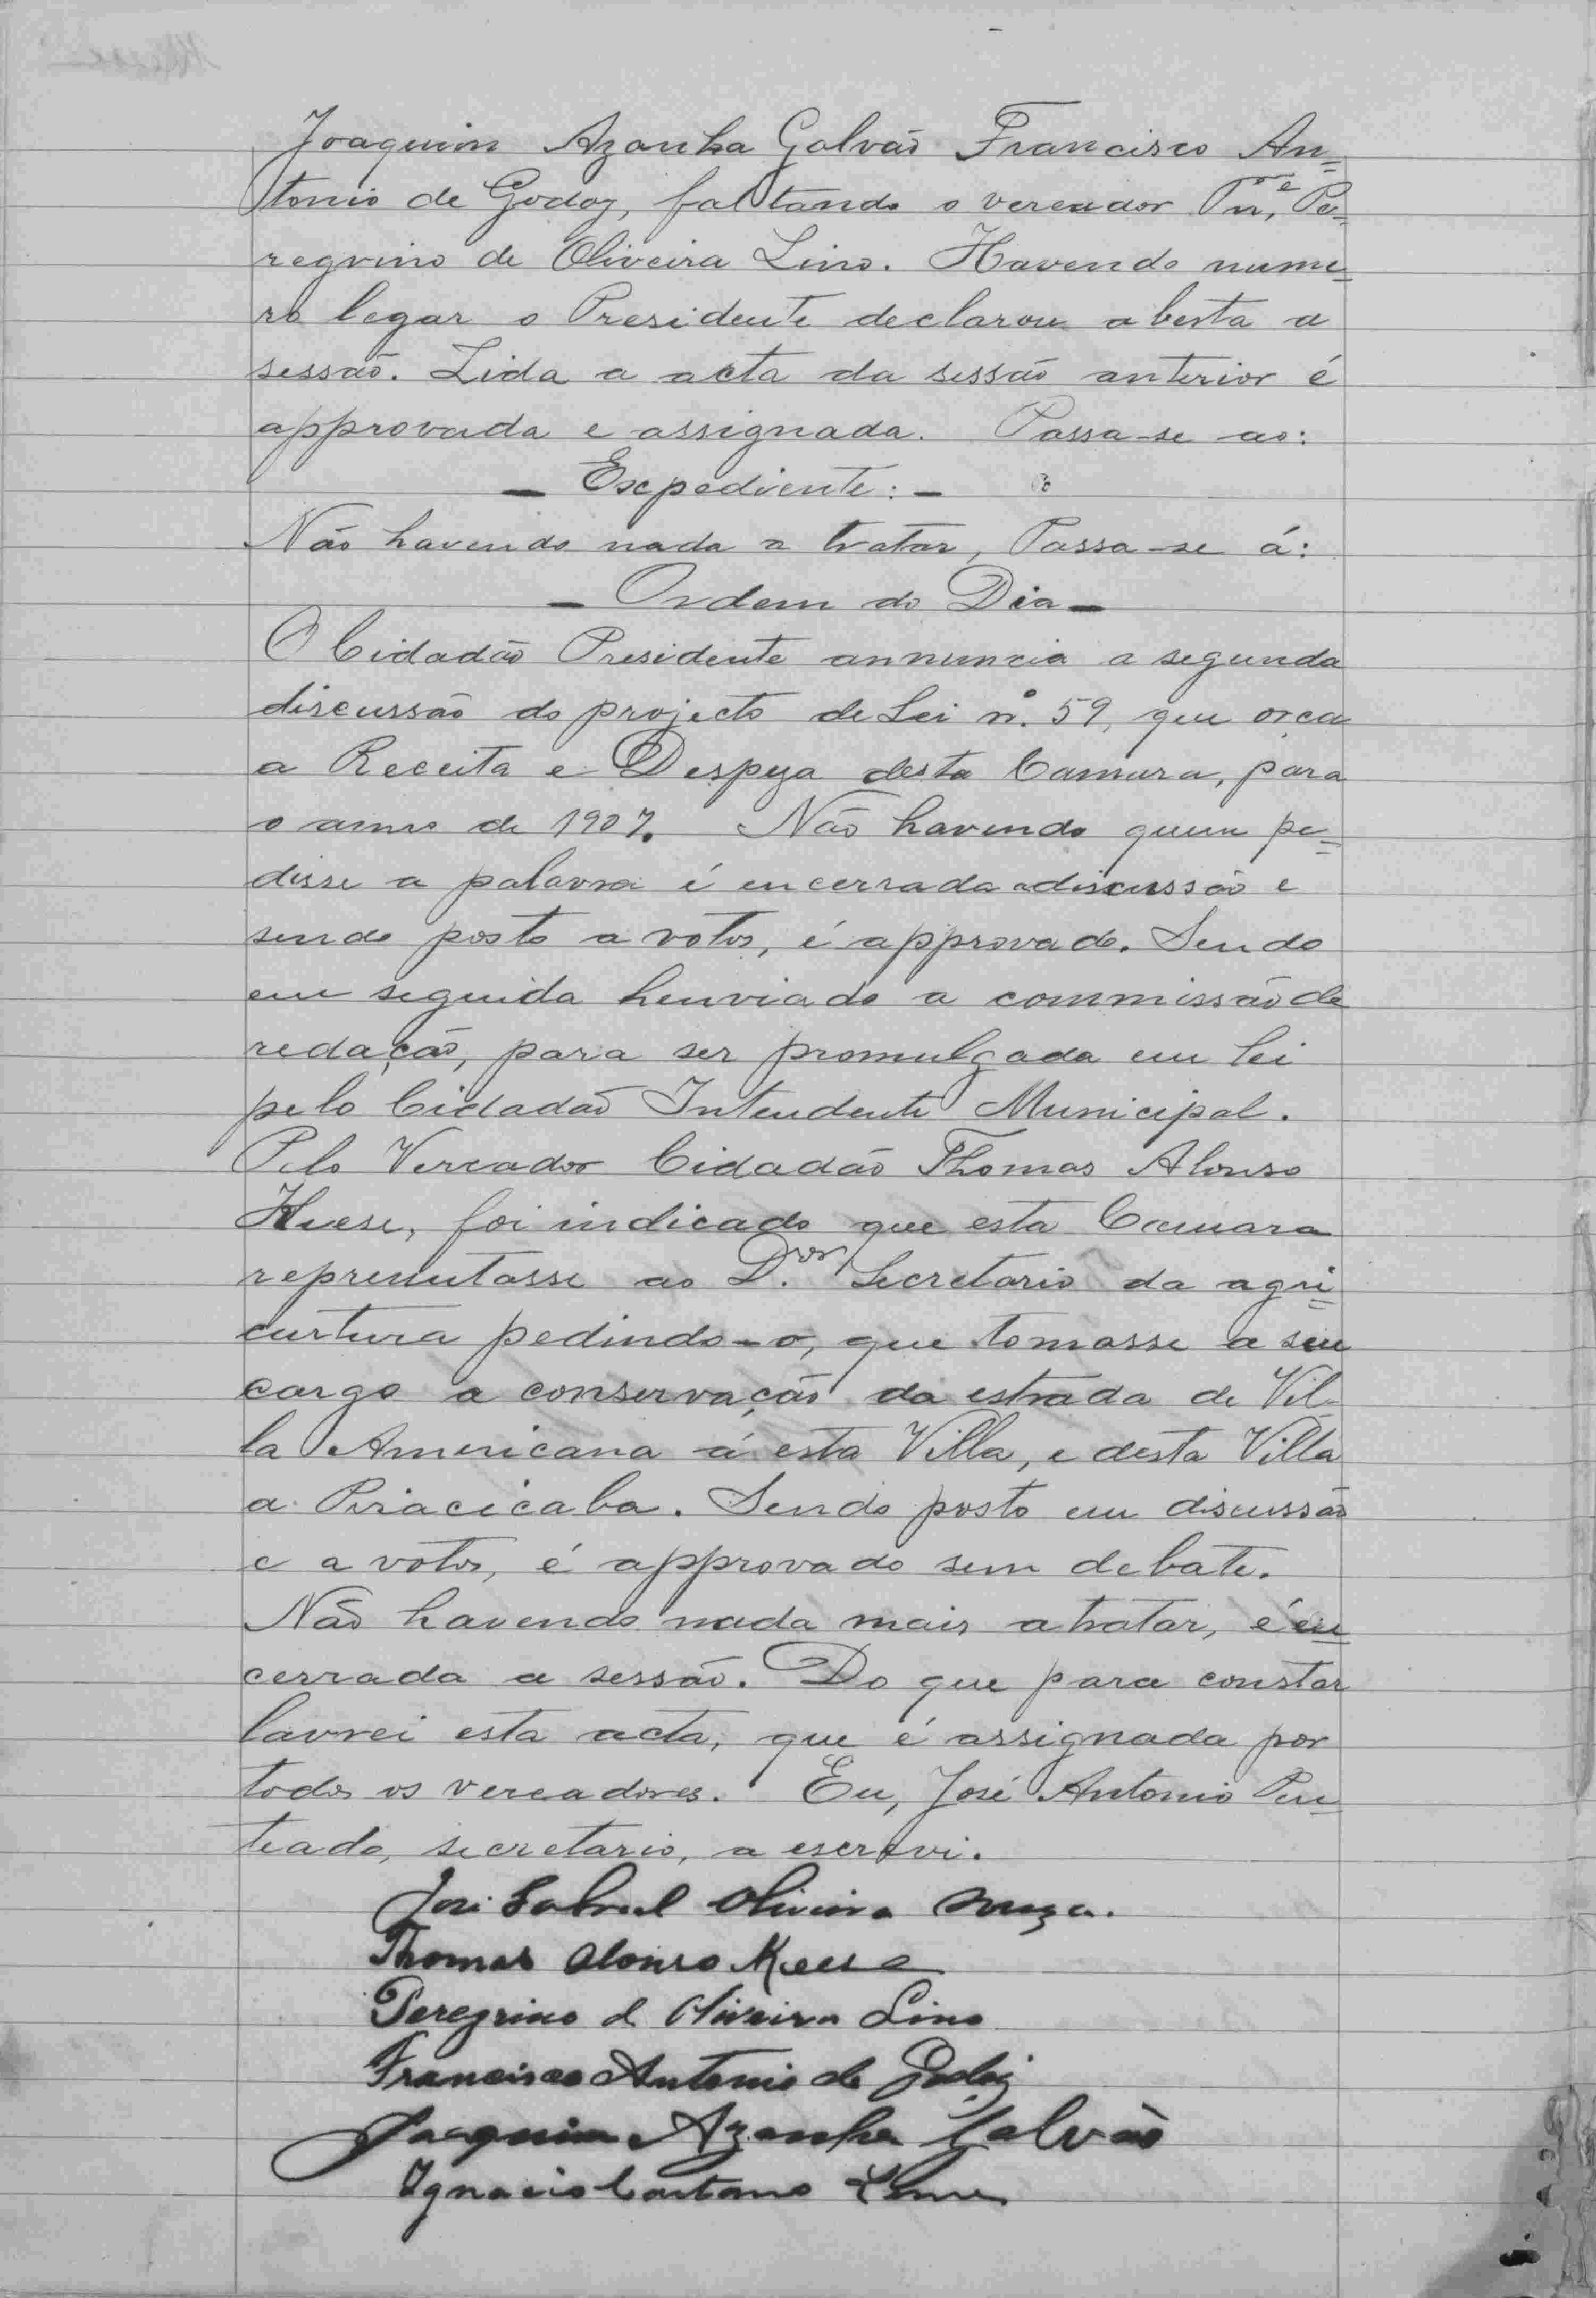 Joaquim Azanha Galvão Francisco An=
tonio de Godoy, faltando o vereador Pe=
regrino de Oliveira Lino. Havendo nume=
ro legar o Presidente declarou aberta a
sessão. Lida a acta da sessão anterior é
approvada e assignada. Passa-se ao:
— Expediente: —
Não havendo nada a tratar, Passa-se á:
— Ordem do Dia —
O Cidadão Presidente annuncia a segunda
discussão do projecto de Lei nº. 59, que orça
a Receita e Despeza desta Camara, para
o anno de 1907. Não havendo quem pe=
disse a palavra é encerrada a discussão e
sendo posto a votos, é approvado. Sendo
em seguida henviado a commissão de
redação, para ser promulgada em lei
pelo Cidadão Intendente Municipal.
Pelo Vereador Cidadão Thomas Alonso
Keese, foi indicado que esta Camara
representasse ao D.or Secretario da agri=
curtura pedindo-o, que tomasse a seu
cargo a conservação da estrada de Vil-
la Americana á esta Villa, e desta Villa
a Piracicaba. Sendo posto em discussão
e a votos, é approvado sem debate.
Não havendo nada mais a tratar, é en=
cerrada a sessão. Do que para constar
lavrei esta acta, que é assignada por
todos os vereadores. Eu, José Antonio Pen=
teado, secretario, a escrevi.
José Gabriel Oliveira Souza.
Thomas Alonso Keese
Peregrino d Oliveira Lino
Francisco Antonio de Godoy
Joaquim Azanha Galvão
Ignacio Caetano Leme